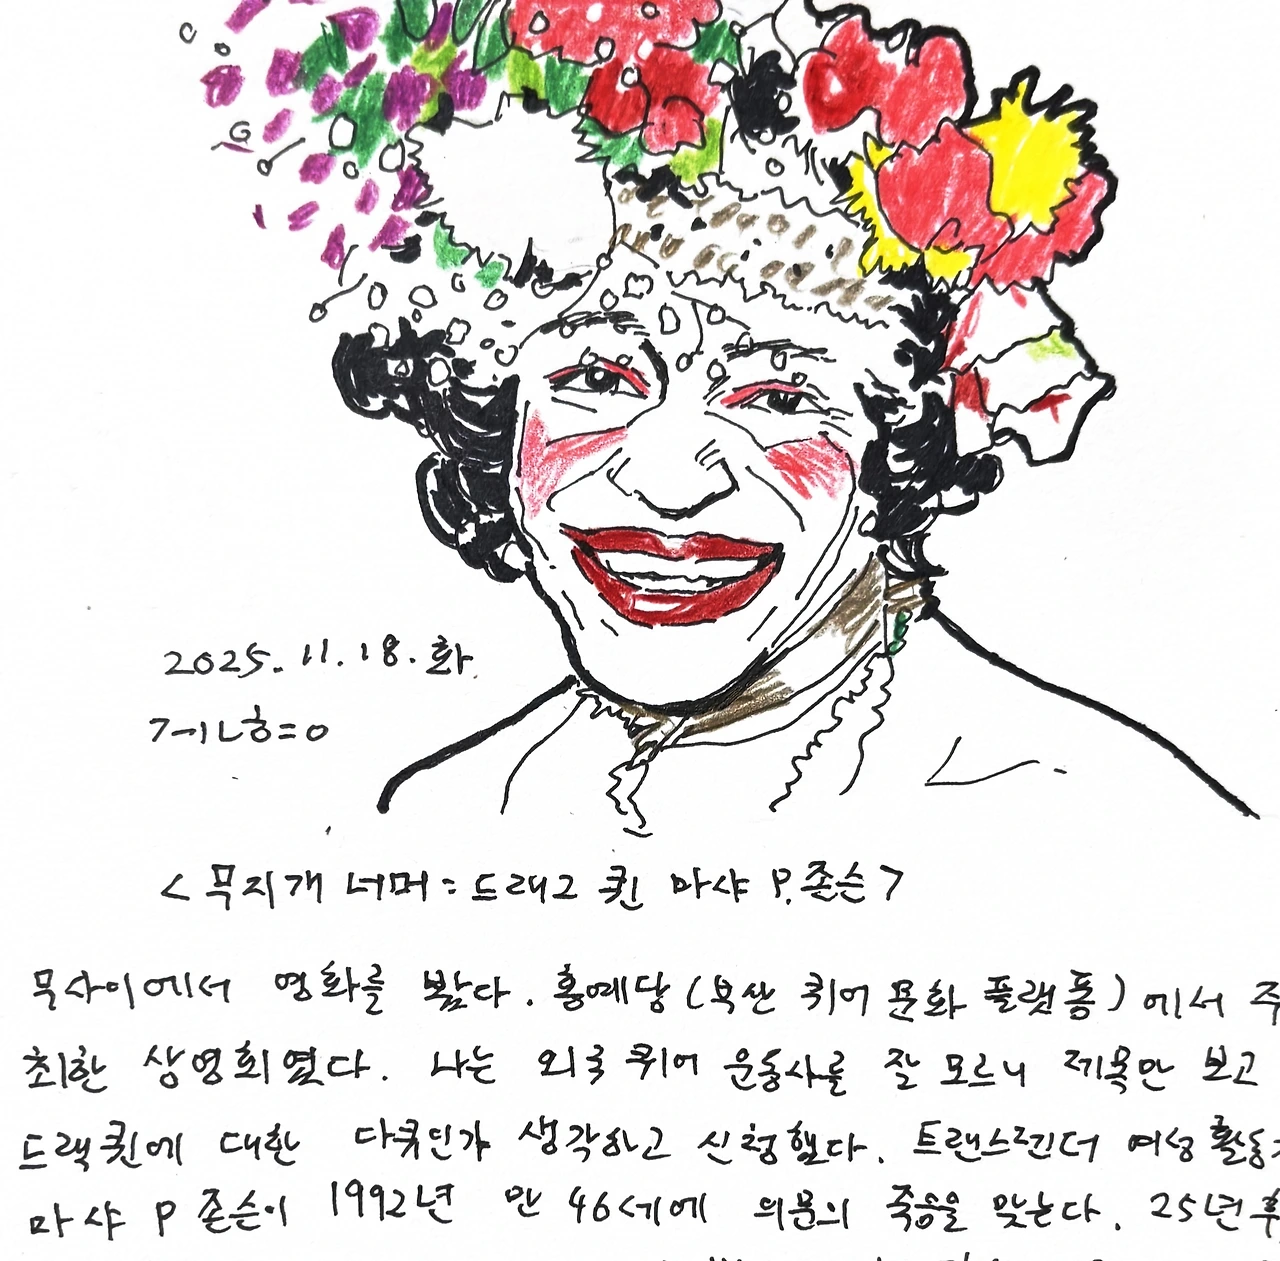 2025. 11. 18. 화.
< 무지개 너머 : 드래그 퀸 마샤 P. 존슨 >
무사이에서 영화를 봤다. 홍예당 (부산 퀴어 문화 플랫폼) 에서 주
최한 상영회였다. 나는 외국 퀴어 운동사를 잘 모르니 제목만 보고
드랙퀸에 대한 다큐인가 생각하고 신청했다. 트랜스젠더 여성 활동
마샤 P 존슨이 1992년 만 46세에 의문의 죽음을 맞는다. 25년 후